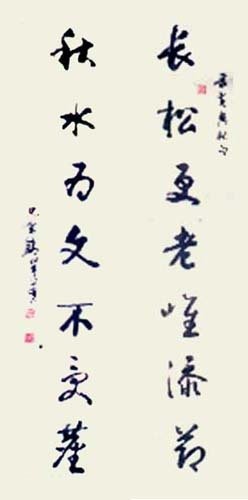 长松更老唯添节
秋水为文不受塵